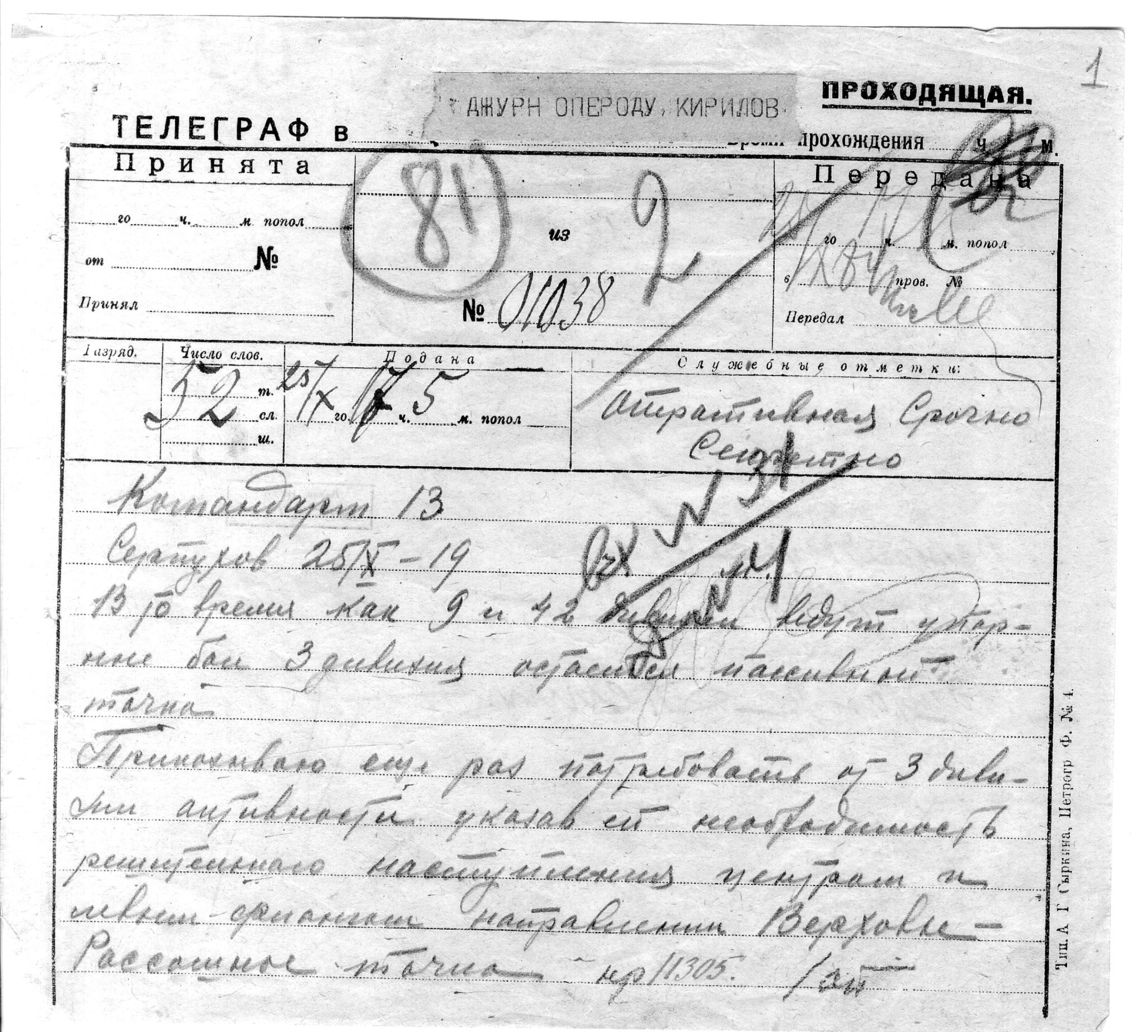 1
ПРОХОДЯЩАЯ.
ДЖУРН ОПЕРОДУ, КИРИЛОВ
ТЕЛЕГРАФ в
Время прохождения ч. м.
Принята
Передана
го ч. м. попол
81
из
2
го ч. м. попол
от №
в пров. №
Принял
№ 01038
Передал
Разряд.
Число слов.
Подана
Служебные отметки:
52
т.
сл.
ш.
25/X го 17 ч. 5 м. попол
Оперативная Срочно
Секретно
Командарм 13
вх N 31
Серпухов 25/X – 19
В то время как 9 и 42 дивизии ведут упор-
ные бои 3 дивизия остается пассивной
точка
Приказываю еще раз потребовать от 3 диви-
зии активности указав ей необходимость
решительного наступления центром и
левым флангом направлении Верховье –
Рассошное точка нр 11305.
Тип. А Г Сыркина, Петрогр Ф. № 4.